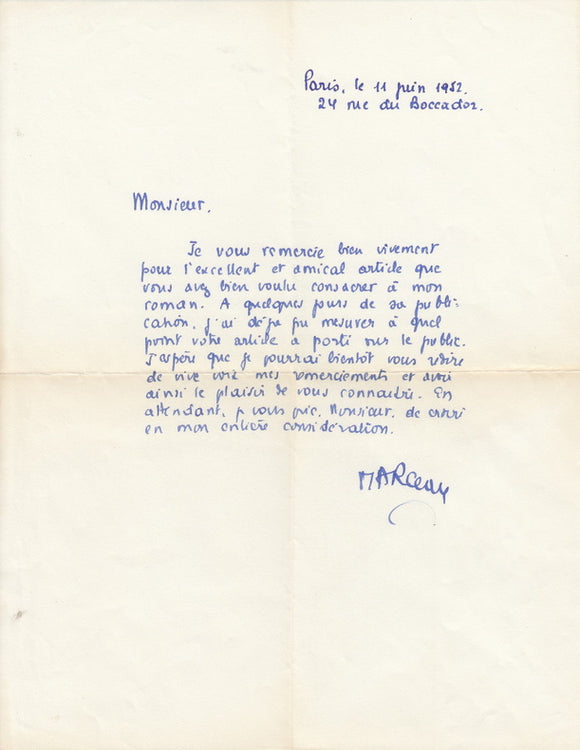 Paris, le 11 juin 1952.
24 rue du Boccador.
Monsieur,
Je vous remercie bien vivement
pour l'excellent et amical article que
vous avez bien voulu consacrer à mon
roman. A quelques jours de sa publi-
cation, j'ai déjà pu mesurer à quel
point votre article a porté sur le public.
J'espère que je pourrai bientôt vous redire
de vive voix mes remerciements et avoir
ainsi le plaisir de vous connaître. En
attendant, je vous prie, Monsieur, de croire
en mon entière considération.
Marceau